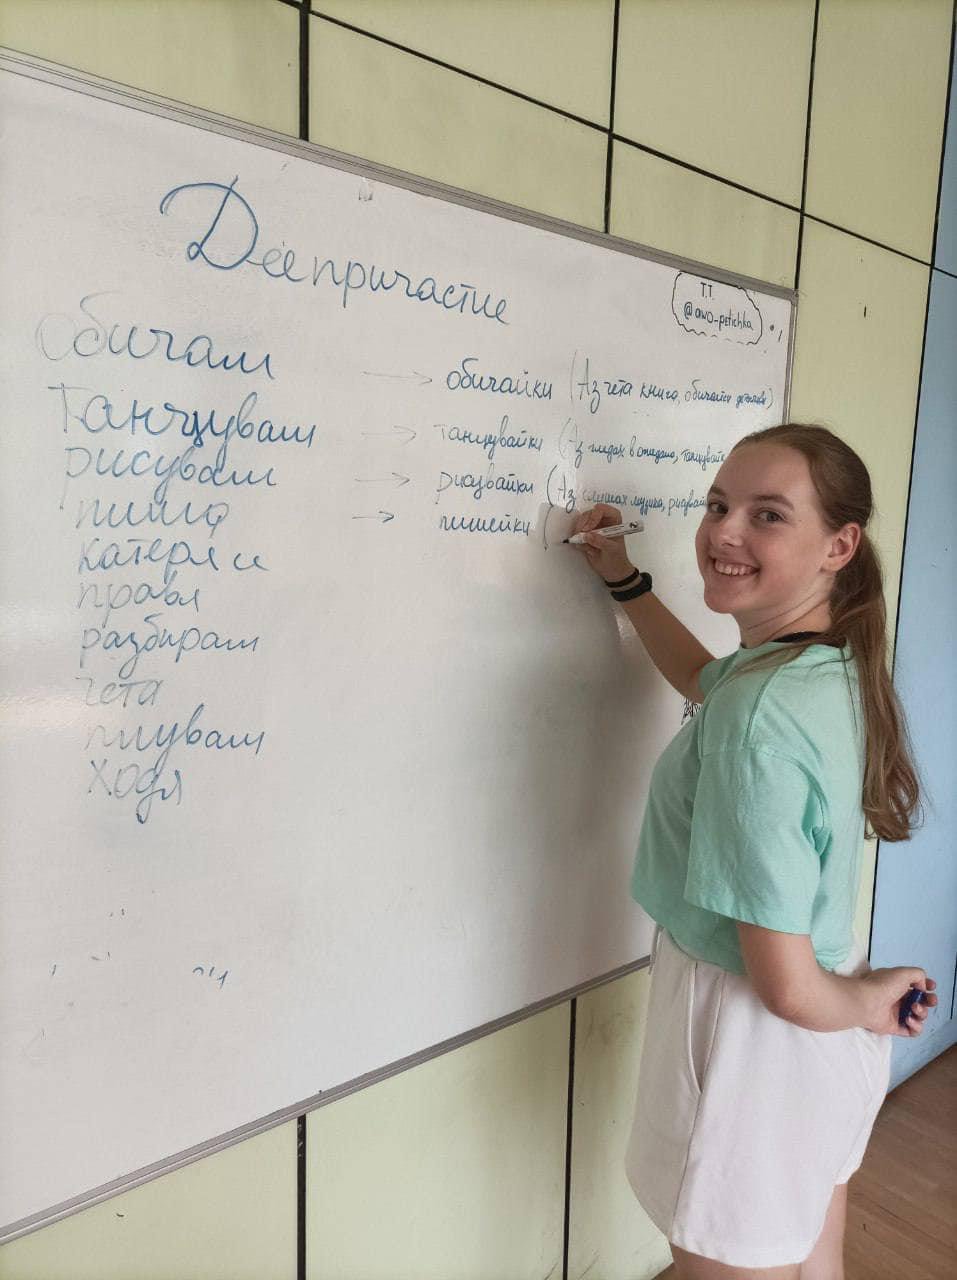 Деепричастие
T.T.
@awo_petichka
Обичам → обичайки (Аз чета книга, обичайки
Танцувам → танцувайки (Аз гледах в огледало, танцувайк
рисувам → рисувайки (Аз слушах музика, рисувай
пиша → пишейки (
катеря се
правя
разбирам
чета
плувам
ходя